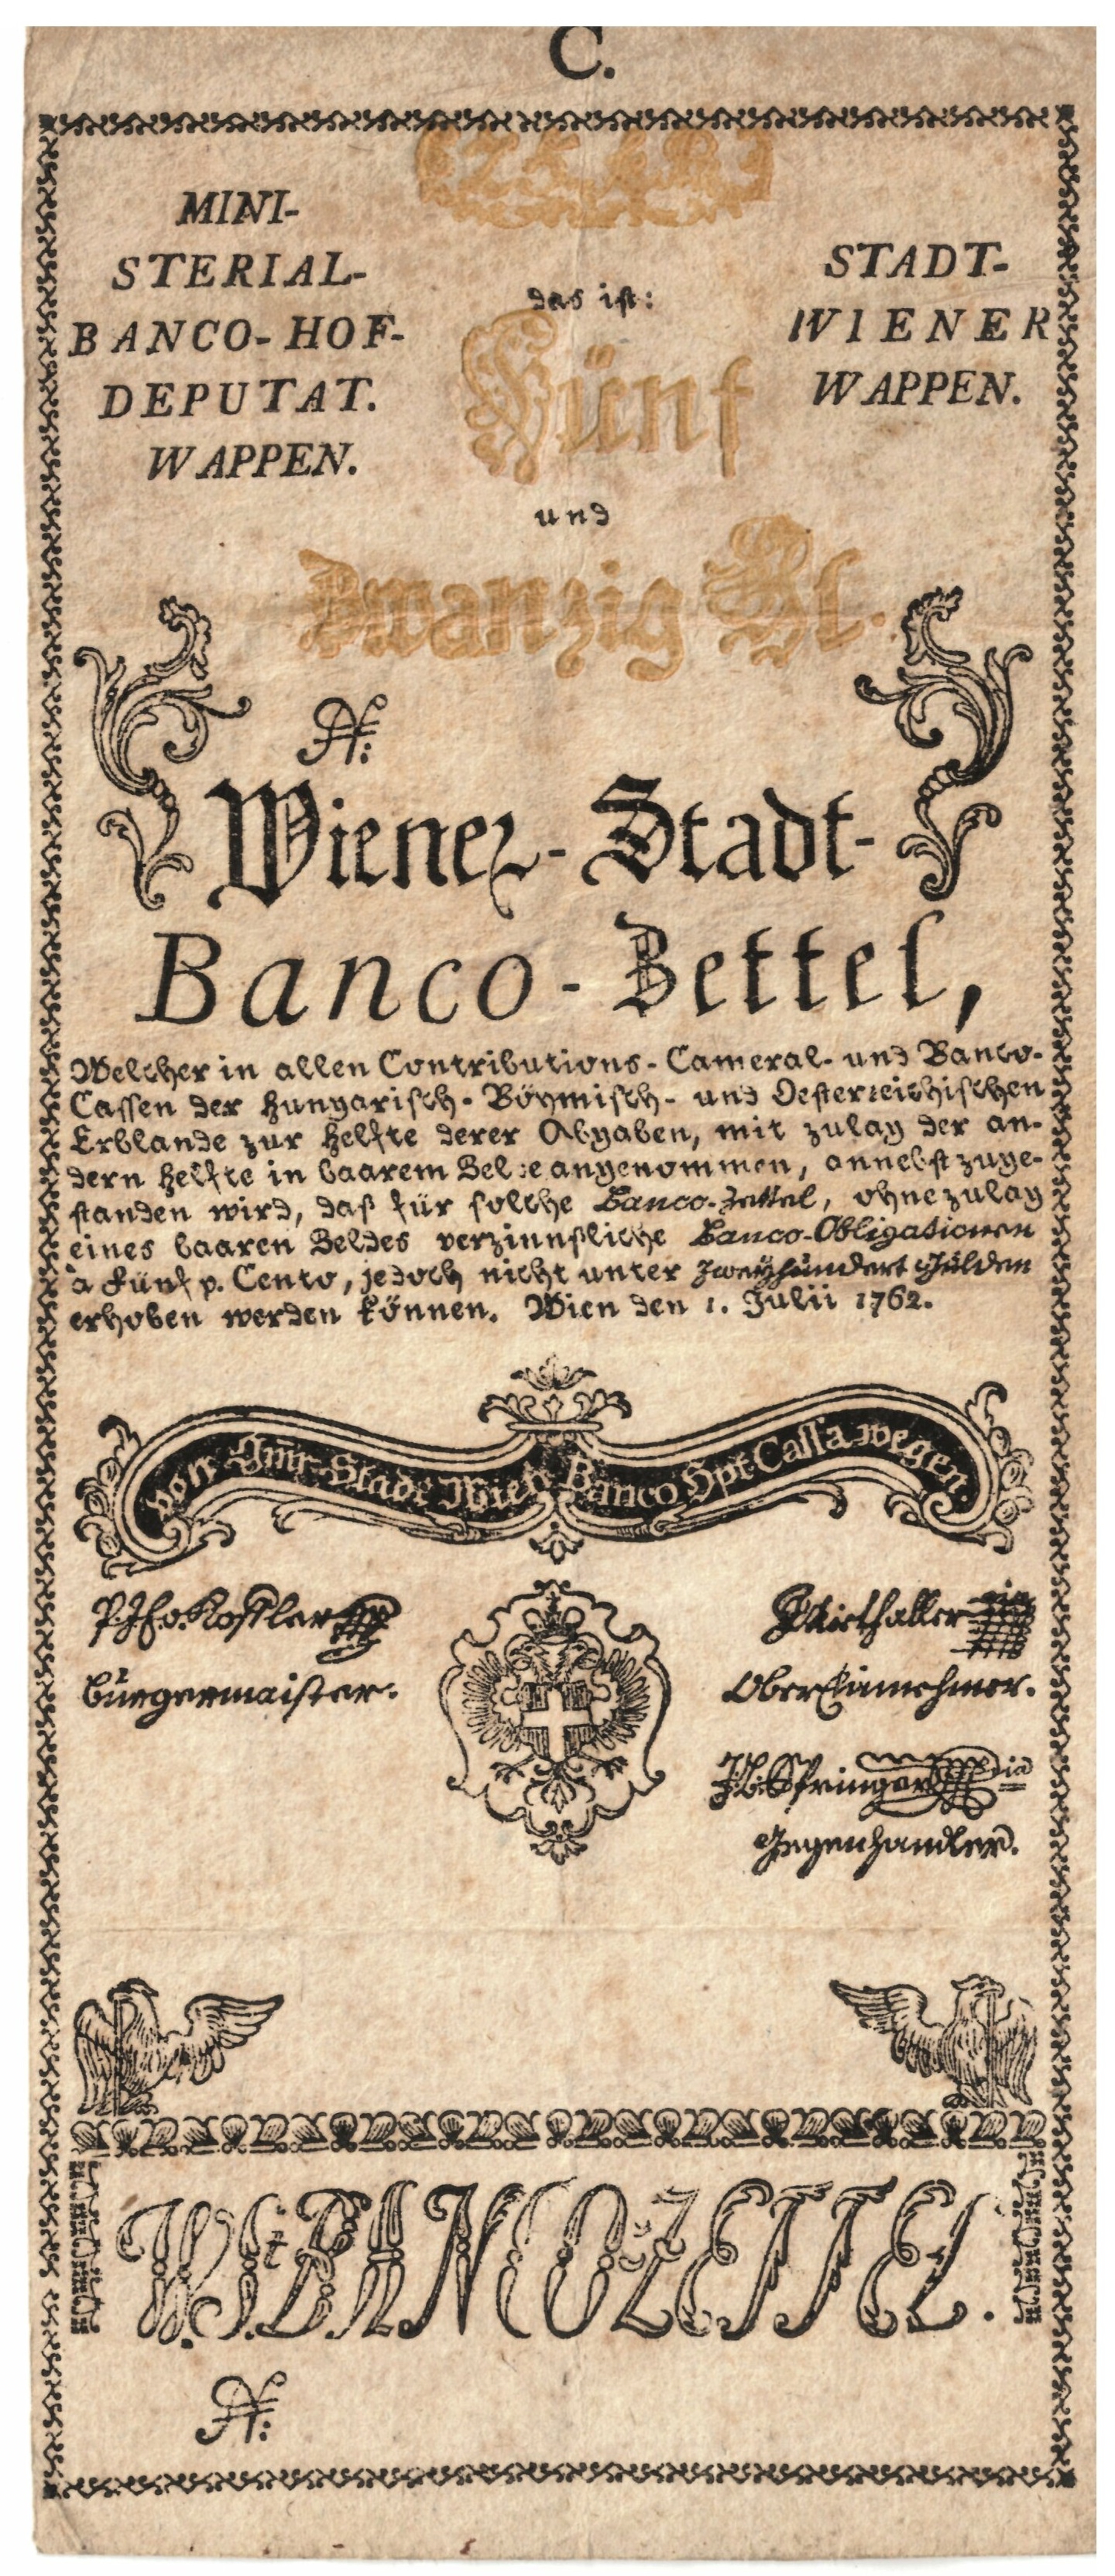 C.
(25. fl.)
MINI-
STERIAL-
BANCO-HOF-
DEPUTAT.
WAPPEN.
STADT-
WIENER
WAPPEN.
das ist:
Fünf
und
Zwanzig Fl.
N:
Wiener-Stadt-
Banco-Zettel,
Welcher in allen Contributions-Cameral- und Banco-
Cassen der Hungarisch-Böymisch- und Oesterreichischen
Erblande zur Helfte derer Abgaben, mit zulag der an-
dern Helfte in baarem Gelde angenommen, annebst zuge-
standen wird, daß für solche Banco-Zettel, ohne zulag
eines baaren Geldes verzinnßliche Banco-Obligationen
à Fünf p. Cento, jedoch nicht unter Zweyhundert Gulden
erhoben werden können. Wien den 1. Julii 1762.
Von Gmr Stadt Wien Banco Hpt Cassa wegen.
Burgermaister.
OberEinnehmer.
Springer
Gegenhandler.
W. St. BANCO ZETTEL.
N: